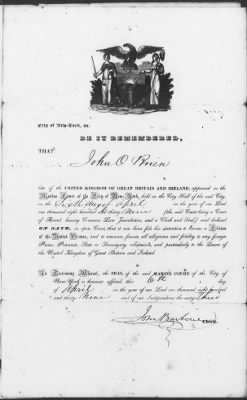 City of New-York, ss.
BE IT REMEMBERED,
THAT
John O'Brien
late of the UNITED KINGDOM OF GREAT BRITAIN AND IRELAND, appeared in the
Marine Court of the City of New-York, held in the City Hall of the said City,
on the Sixth day of April in the year of our Lord
one thousand eight hundred and thirty Nine (the said Court being a Court
of Record, having Common Law Jurisdiction, and a Clerk and Seal) and declared
ON OATH, in open Court, that it was bona fide his intention to become a Citizen
of the United States, and to renounce forever all allegiance and fidelity to any foreign
Prince, Potentate, State or Sovereignty whatever, and particularly to the Queen of
the United Kingdom of Great Britain and Ireland.
In Testimony Whereof, the SEAL of the said MARINE COURT of the City of
New-York is hereunto affixed, this 6th day
of April in the year of our Lord one thousand eight hundred
and thirty Nine and of our Independence the sixty third
John Barberie